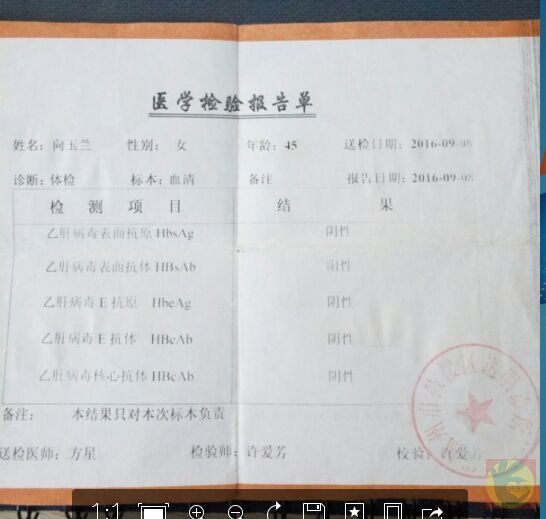 医学检验报告单
姓名：向玉兰 性别： 女 年龄：45 送检日期：2016-09-08
诊断：体检 标本：血清 备注 报告日期：2016-09-08
检 测 项 目 结 果
乙肝病毒表面抗原 HbsAg 阴性
乙肝病毒表面抗体 HBsAb 阴性
乙肝病毒 E 抗原 HbeAg 阴性
乙肝病毒 E 抗体 HBeAb 阴性
乙肝病毒核心抗体 HBcAb 阴性
备注： 本结果只对本次标本负责
送检医师：方星 检验师：许爱芳 校验：许爱芳
1:1